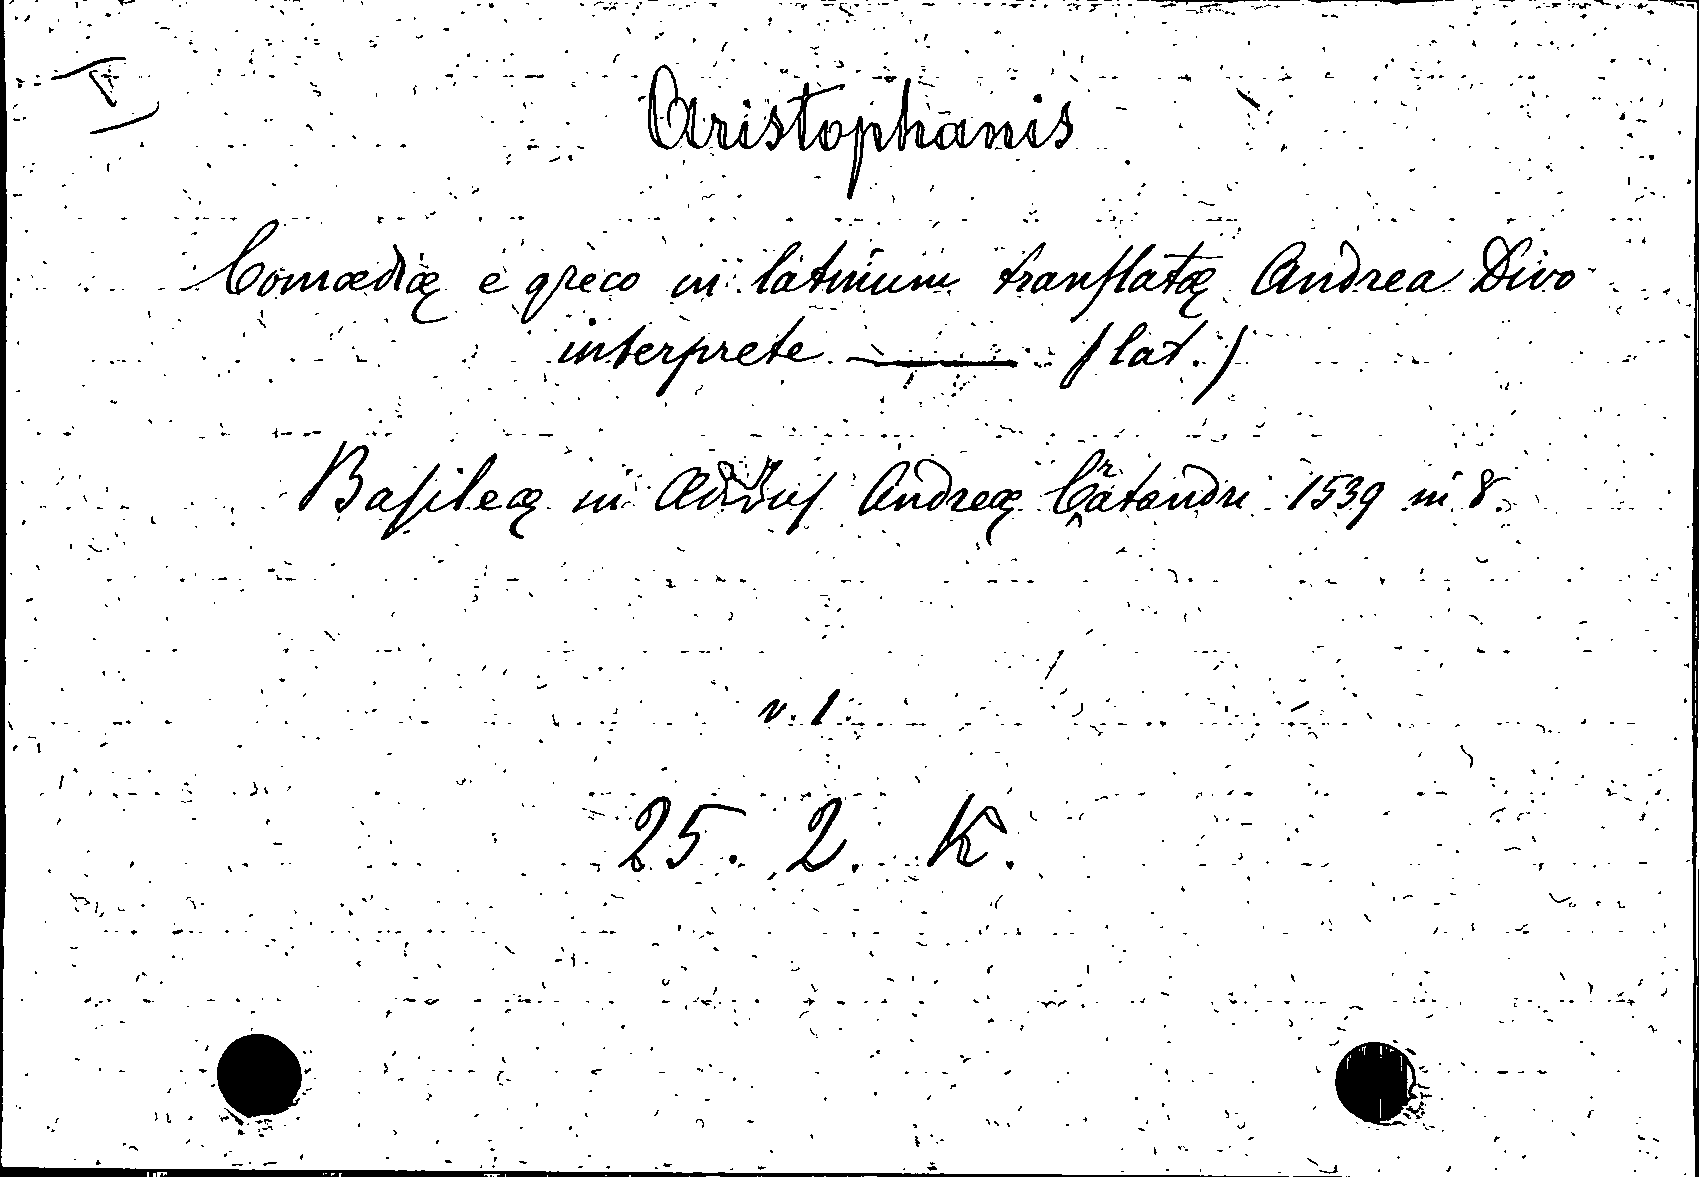 Aristophanis
Comœdiæ e greco in latinum tranſlatæ Andrea Divo
interprete ——— (lat.)
Baſileæ in Ædibuſ Andreæ Cratandri 1539 in 8.
v. 1.
25. 2. K.